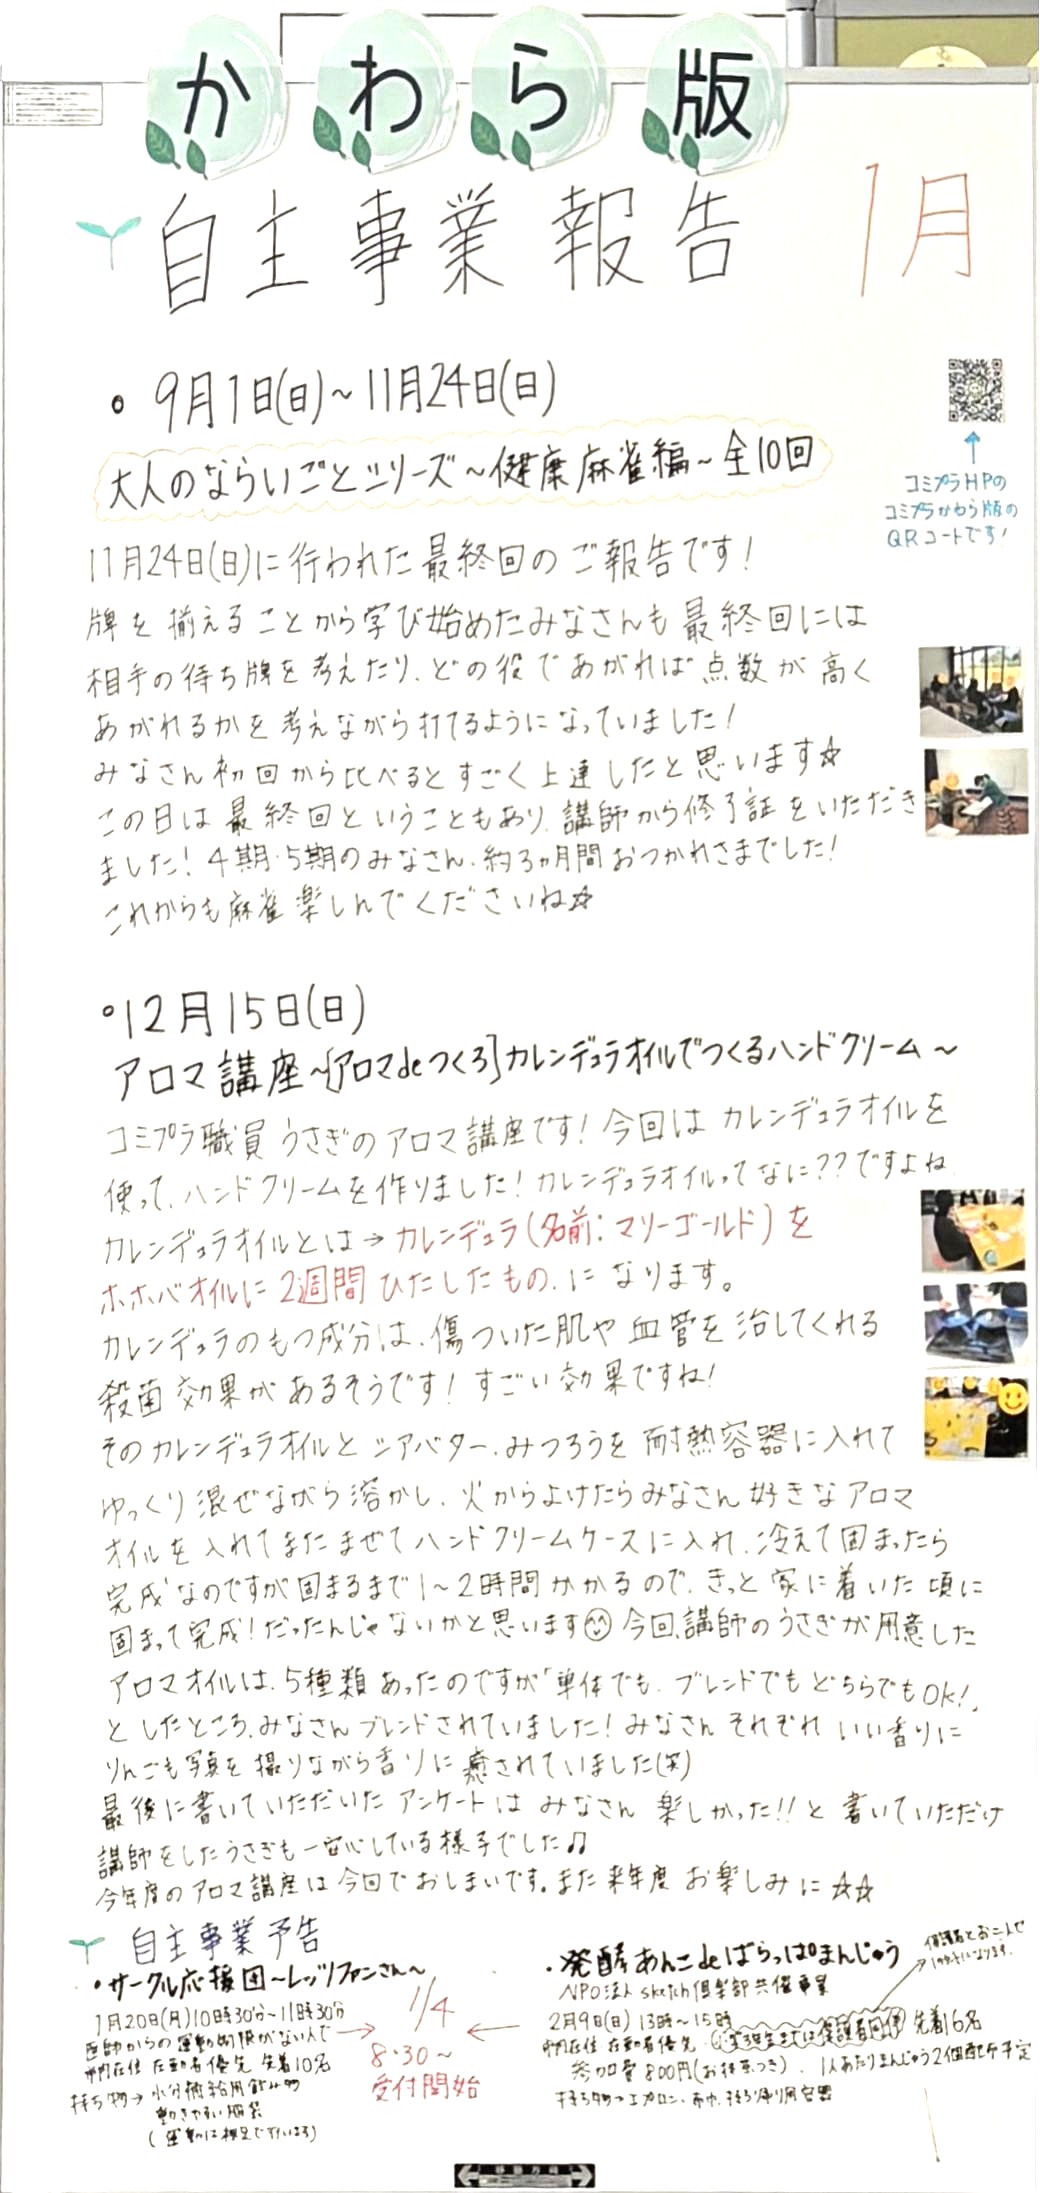 かわら版
自主事業報告
1月
・9月1日(日)~11月24日(日)
大人のならいごとシリーズ~健康麻雀編~全10回
コミプラHPの
コミプラかわら版の
QRコードです!
11月24日(日)に行われた最終回のご報告です!
牌を揃えることから学び始めたみなさんも最終回には
相手の待ち牌を考えたり、どの役であがれば点数が高く
あがれるかを考えながら打てるようになっていました!
みなさん初回から比べるとすごく上達したと思います☆
この日は最終回ということもあり、講師から修了証をいただき
ました!4期・5期のみなさん、約3ヵ月間おつかれさまでした!
これからも麻雀楽しんでくださいね☆
・12月15日(日)
アロマ講座~[アロマdeつくろ]カレンデュラオイルでつくるハンドクリーム~
コミプラ職員うさぎのアロマ講座です!今回はカレンデュラオイルを
使って、ハンドクリームを作りました!カレンデュラオイルってなに??ですよね
カレンデュラオイルとは→カレンデュラ(名前:マリーゴールド)を
ホホバオイルに2週間ひたしたもの、になります。
カレンデュラのもつ成分は、傷ついた肌や血管を治してくれる
殺菌効果があるそうです!すごい効果ですね!
そのカレンデュラオイルとシアバター、みつろうを耐熱容器に入れて
ゆっくり混ぜながら溶かし、火からよけたらみなさん好きなアロマ
オイルを入れてまたまぜてハンドクリームケースに入れ、冷えて固まったら
完成なのですが固まるまで1~2時間かかるので、きっと家に着いた頃に
固まって完成!だったんじゃないかと思います 今回、講師のうさぎが用意した
アロマオイルは、5種類あったのですが「単体でも、ブレンドでもどちらでもOK!」
としたところ、みなさんブレンドされていました!みなさんそれぞれいい香りに
りんごも写真を撮りながら香りに癒されていました(笑)
最後に書いていただいたアンケートはみなさん楽しかった!!と書いていただけ
講師をしたうさぎも一安心している様子でした♫
今年度のアロマ講座は今回でおしまいです。また来年度お楽しみに☆☆
自主事業予告
・サークル応援団~レッツファンさん~
1月20日(月)10時30分~11時30分
医師からの運動制限がない人で
市内在住 在勤者優先 先着10名
持ち物→水分補給用飲み物
動きやすい服装
(運動は裸足で行います)
1/4
8:30~
受付開始
・発酵あんこdeばらっぱまんじゅう
NPO法人sketch倶楽部共催事業
2月9日(日)13時~15時
市内在住 在勤者優先 小3年生までは保護者同伴 先着16名
保護者とお二人で
1枠になります。
参加費800円(お抹茶つき)、1人あたりまんじゅう2個配分予定
持ち物→エプロン、布巾、持ち帰り用容器